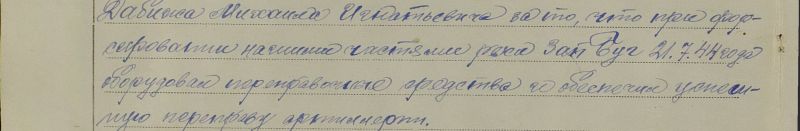 Михаила Игнатьевича за то, что при фор-
сировании нашими частями реки Зап Буг 21.7.44 года
оборудовал переправочные средства и обеспечил успеш-
ную переправу артиллерии.